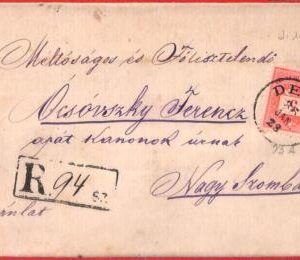 Méltóságos és Főtisztelendő
Ocsóvszky Ferencz
apát Kanonok úrnak
R 94 sz.
Nagy Szomba
ánlat
DE
JAN
23